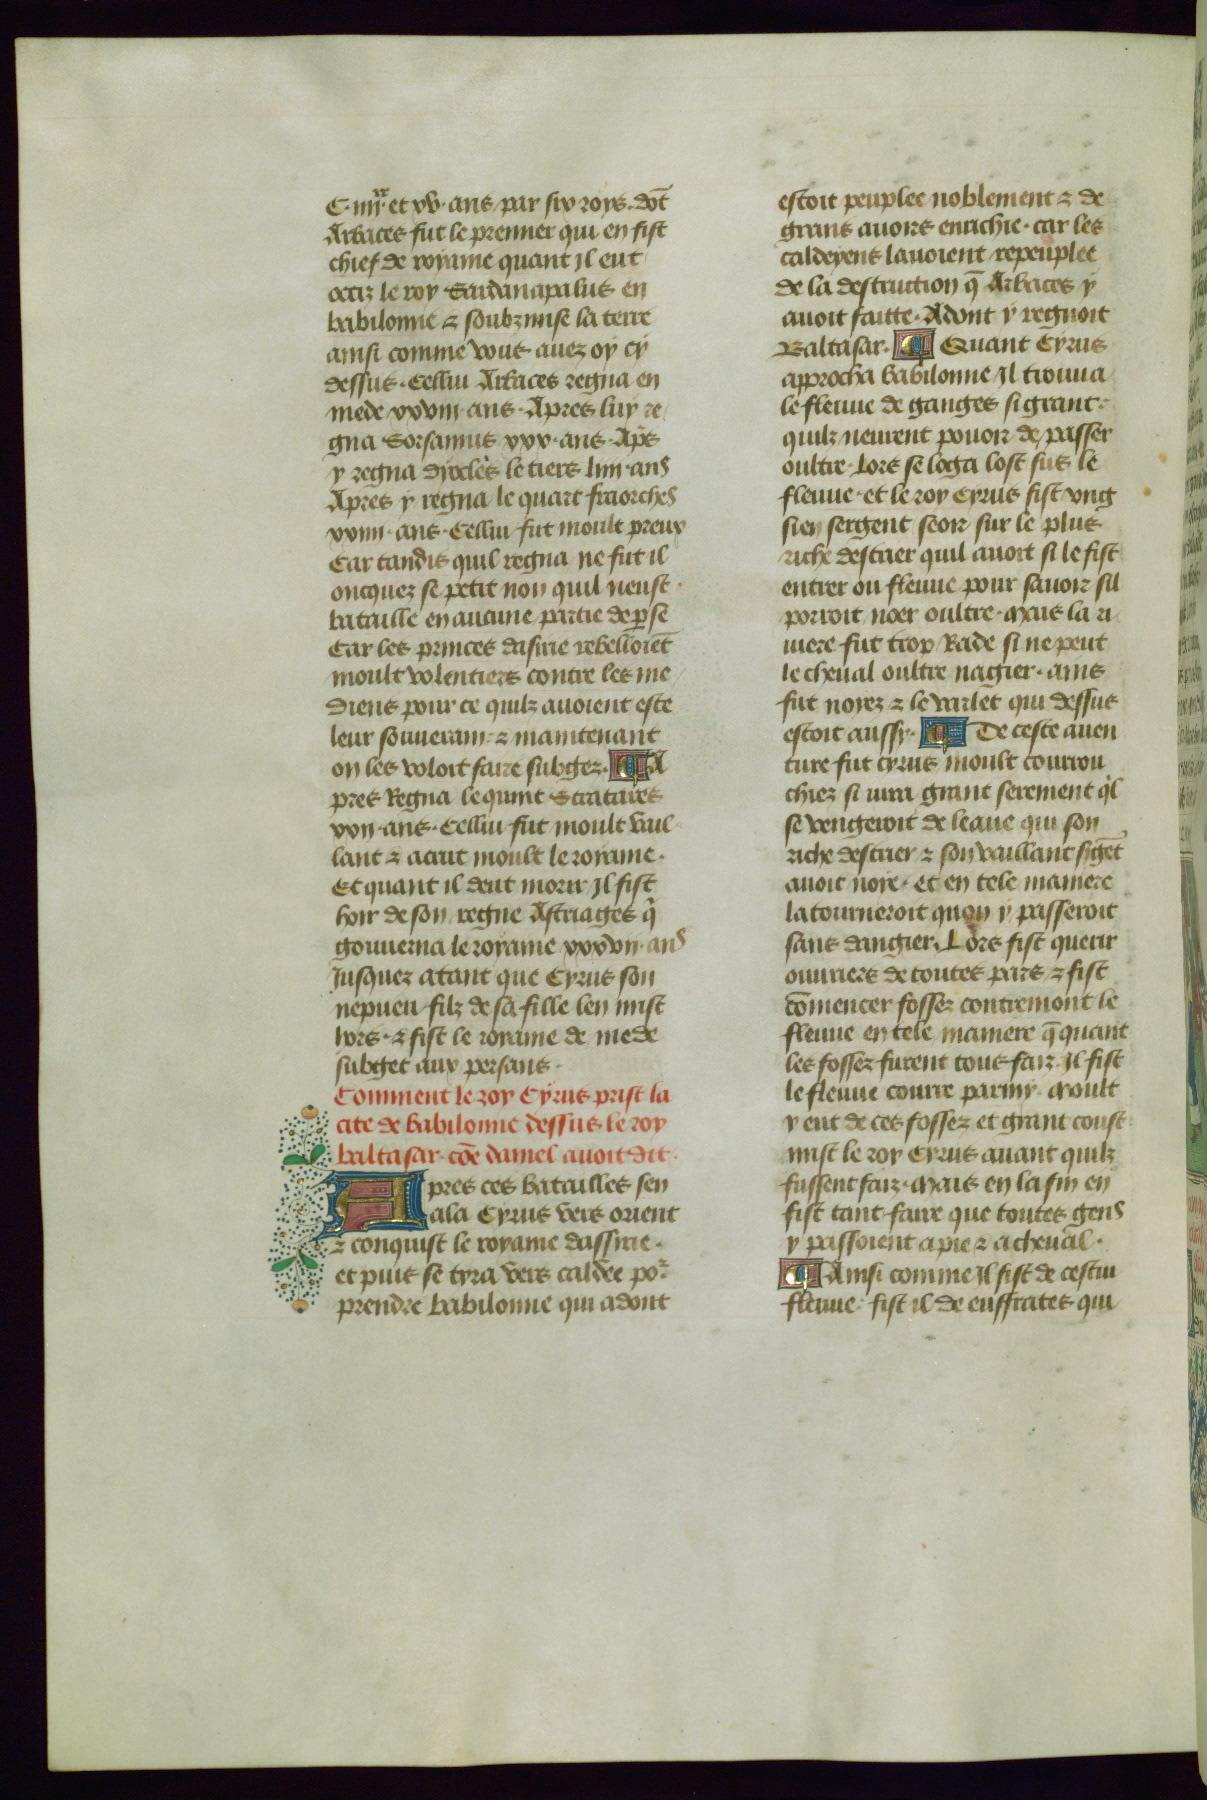 C. iiii.xx et xv. ans par six roys. dōt
Arbaces fut le premier qui en fist
chief de royame quant il eut
occiz le roy Sardanapalus en
babilonne ⁊ soubzmise la terre
ainsi comme vous auez oÿ cÿ
dessus. Cellui Arbaces regna en
mede xxviii. ans. Apres luy re
gna Sorsamus xxx. ans. Aps̄
y regna dyoclés le tiers liiii. ans
Apres ÿ regna le quart fraorches
xxiiii. ans. Cellui fut moult preux
Car tandis quil regna ne fut il
oncquez se petit non quil neust
bataille en aucune partie de p̄se
Car les princes dasirie rebelloiēt
moult volentiers contre les me
diens pour ce quilz auoient este
leur souuerain ⁊ maintenant
on les voloit faire subgez. A
pres Regna le quint Scratares
xxii. ans. Cellui fut moult vail
lant ⁊ acrut moult le royame.
Et quant il deut morir Il fist
hoir de son regne Astriages q̄
gouuerna le royame xxxvii. ans
Jusquez atant que Cyrus son
nepueu filz de sa fille len mist
hors. ⁊ fist le royame de mede
subget aux persans.
Comment le roy Cyrus prist la
cite de babilonne dessus le roy
baltasar. cōe daniel auoit dit.
Apres ces batailles sen
ala Cyrus vers orient
⁊ conquist le royame dassirie.
et puis se tyra vers caldee por
prendre babilonne qui adont
estoit peuplee noblement ⁊ de
grans auoirs enrichie. car les
caldeyens lauoient repeuplee
de la destruction q̄ Arbaces ÿ
auoit faitte. Adont ÿ regnoit
Baltasar. Quant Cyrus
approcha babilonne Il trouua
le fleuue de ganges si grant
quilz neurent pouoir de passer
oultre. Lors se loga lost sus le
fleuue. et le roy Cyrus fist vng
sien sergent seoir sur le plus
riche destrier quil auoit si le fist
entrer ou fleuue pour sauoir sil
porroit noer oultre. Mais la ri
uiere fut trop Rade si ne peut
le cheual oultre nagier. ains
fut noyez ⁊ le varlet qui dessus
estoit aussy. De ceste auen
ture fut cyrus moult courrou
chiez si iura grant serement q̄l
se vengeroit de leaue qui son
riche destrier ⁊ son vaillant sgēt
auoit noye. et en tele maniere
latourneroit quon ÿ passeroit
sans dangier. Lors fist querir
ouuriers de toutes pars ⁊ fist
cōmencer fossez contremont le
fleuue en tele maniere q̄ quant
les fossez furent tous faiz. Il fist
le fleuue courre parmy. Moult
y eut de ces fossez et grant coust
mist le roy Cyrus auant quilz
fussent faiz. Mais en la fin en
fist tant faire que toutes gens
y passoient a pie ⁊ a cheual.
Ainsi comme Il fist de cestui
fleuue fist il de euffrates qui